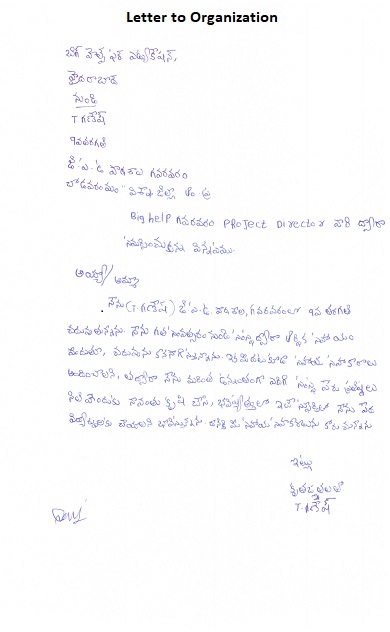 Letter to Organization
బిగ్ హెల్ప్ ఫర్ ఎడ్యుకేషన్,
హైదరాబాద్
నుండి
T గణేష్
9వ తరగతి
డి.ఎ.డి పాఠశాల గవరవరం
చోడవరం మం" విశాఖ జిల్లా ఆం.ప్ర
Big help గవరవరం PROJECT DIRECTOR వారి ద్వారా
సమర్పించుకున్న విన్నపము.
అయ్యా/
అమ్మా
నేను (T గణేష్) డి.ఎ.డి. పాఠశాల, గవరవరంలో 9వ తరగతి
చదువుతున్నాను. నేను గత సంవత్సరం నుండి సంస్థ ద్వారా ఆర్థిక సహాయం
పొందుతూ, చదువును కొనసాగిస్తున్నాను. ఇక మీదట కూడా సహాయ సహకారాలు
అందించాలని, తద్వారా నేను మరింత ఉన్నతంగా ఎదిగి సంస్థ పేరు ప్రతిష్టలు
నిలిపేందుకు నావంతు కృషి చేసి, భవిష్యత్తులో ఇదే సంస్థలో నేను పేద
విద్యార్థులకు చేయాలని భావిస్తున్నాను కనుక మీ సహాయ సహకారాలను కోరుచున్నాను.
ఇట్లు
కృతజ్ఞతలతో
T. గణేష్